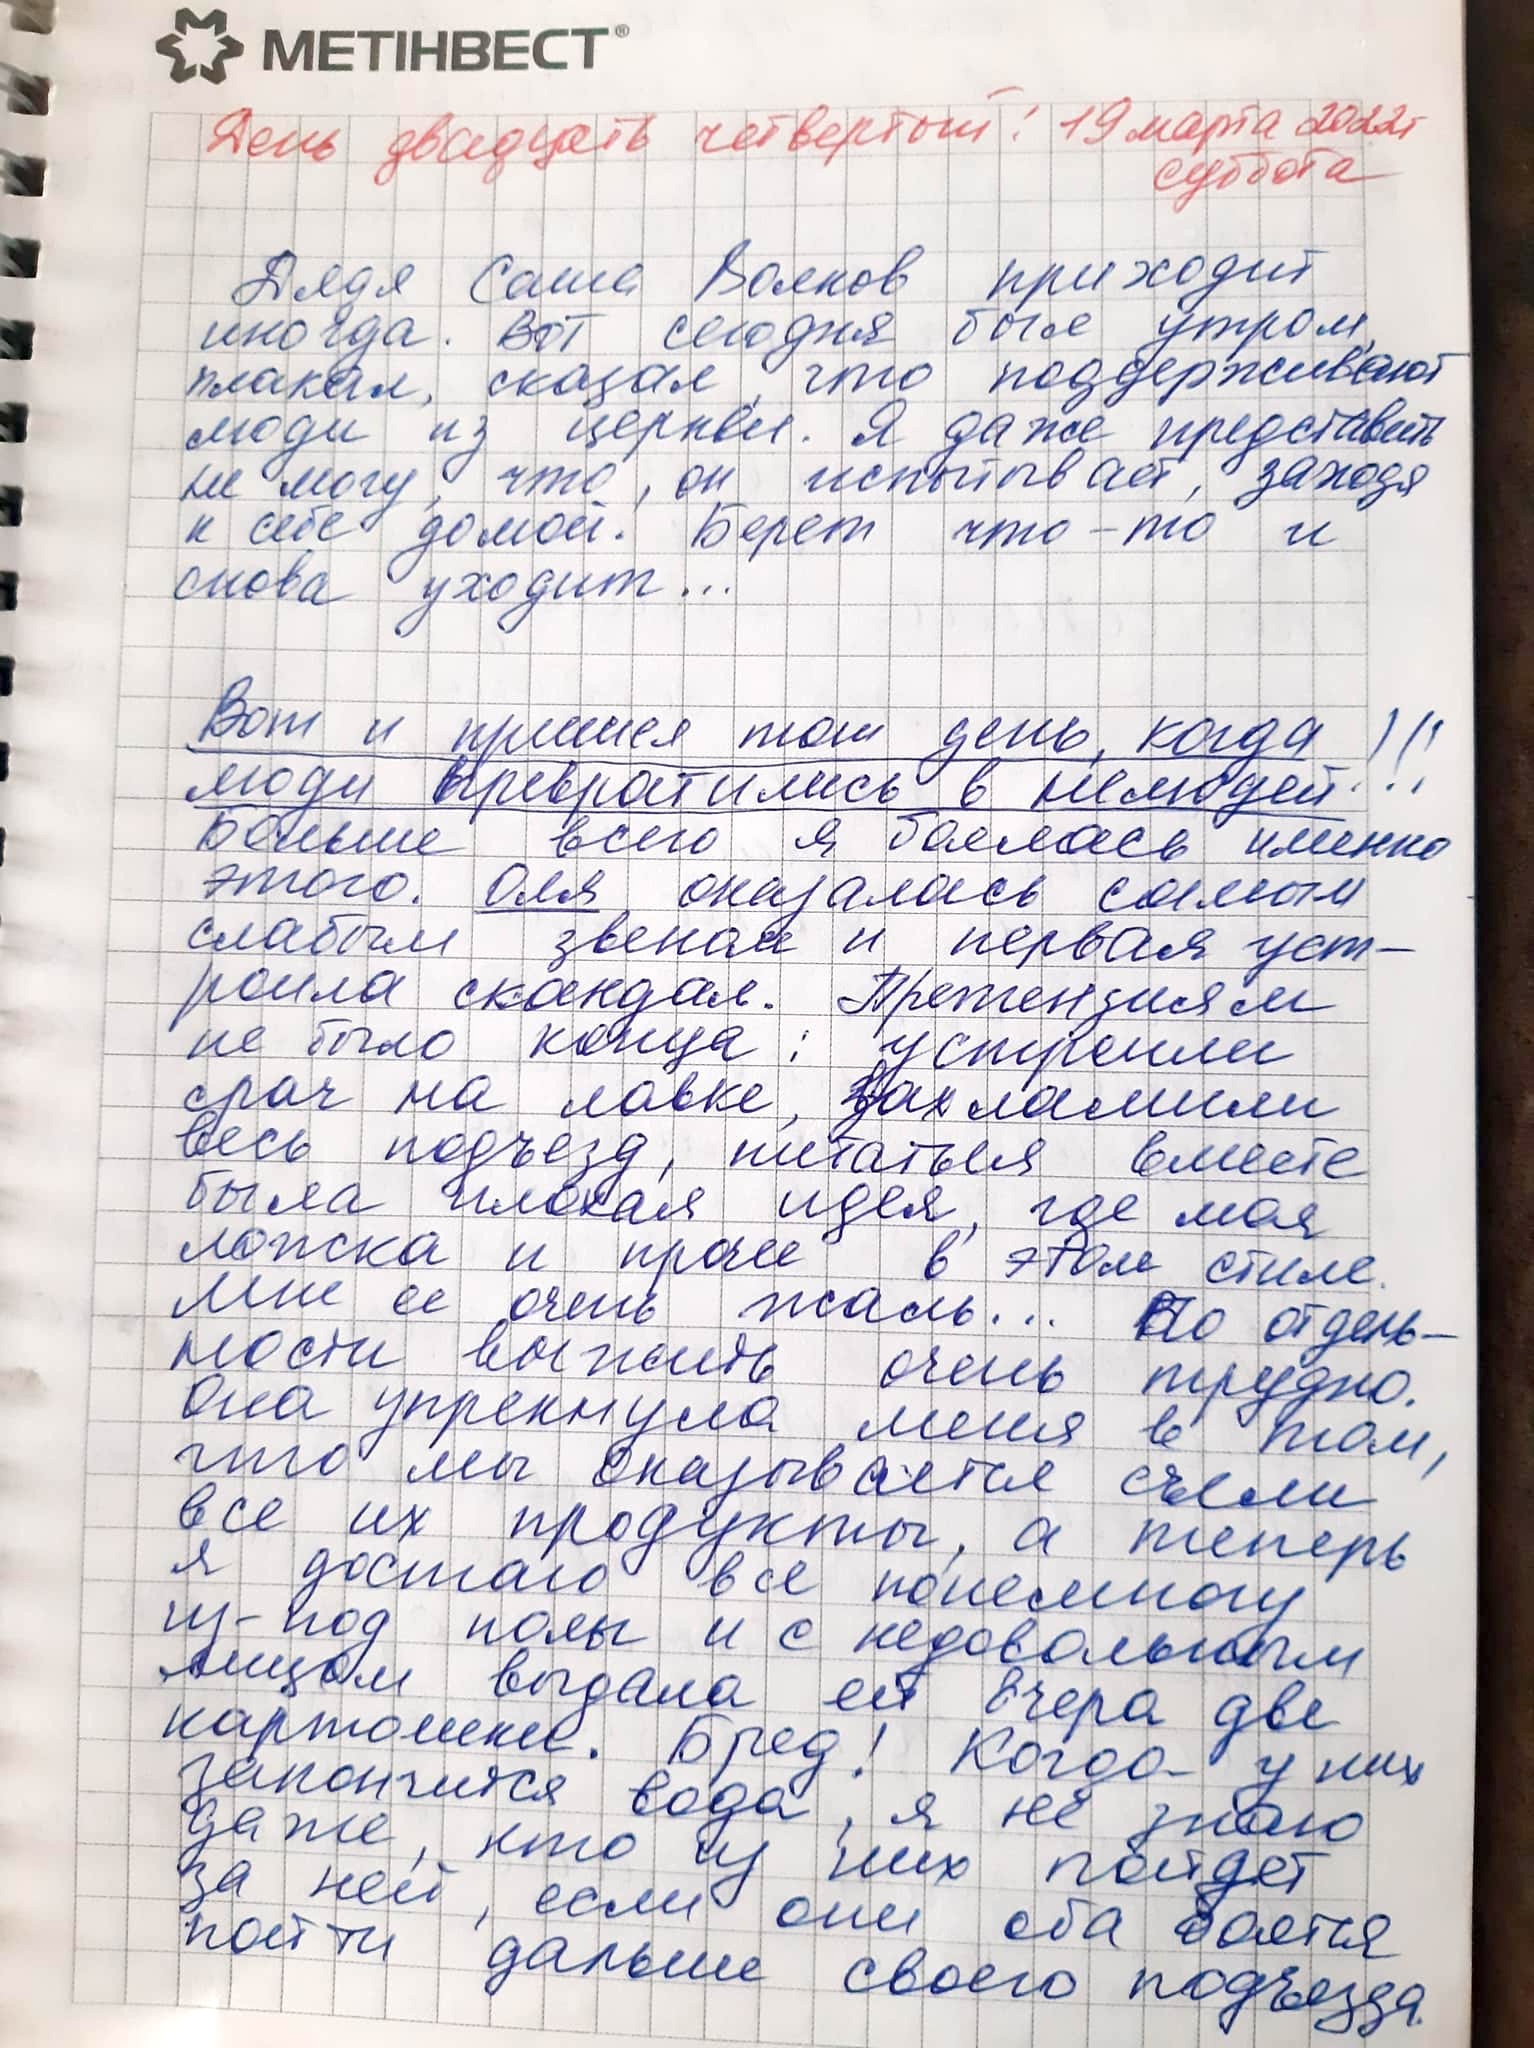 МЕТІНВЕСТ®
День двадцать четвертый! 19 марта 2022г
суббота
Дядя Саша Волков приходит
иногда. Вот сегодня был утром,
плакал, сказал, что поддерживают
люди из церкви. Я даже представить
не могу, что, он испытывает, заходя
к себе домой. Берет что-то и
снова уходит...
Вот и пришел тот день, когда !!!
люди превратились в нелюдей.
Больше всего я боялась именно
этого. Оля оказалась самым
слабым звеном и первая уст-
роила скандал. Претензиям
не было конца: устроили
срач на лавке, захламили
весь подъезд, питаться вместе
была плохая идея, где моя
ложка и прочее в этом стиле.
Мне ее очень жаль... По отдель-
ности выжить очень трудно.
Она упрекнула меня в том,
что мы оказывается съели
все их продукты, а теперь
я достаю все понемногу
из-под полы и с недовольным
лицом выдала ей вчера две
картошки. Бред! Когда у них
закончится вода, я не знаю
даже, кто из них пойдет
за ней, если они оба боятся
пойти дальше своего подъезда.